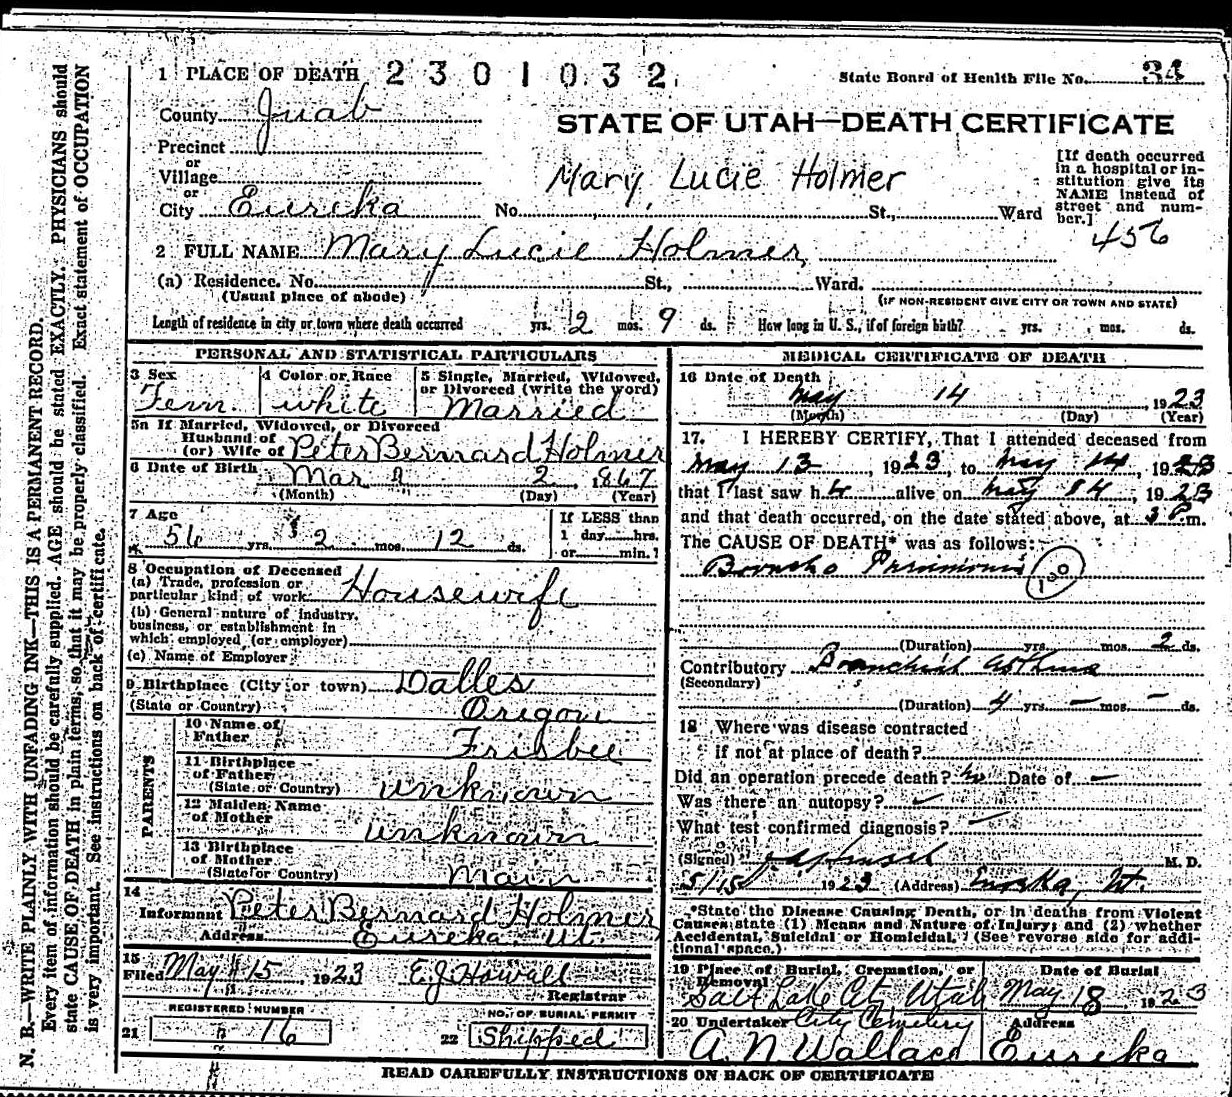 1 PLACE OF DEATH 2301032
State Board of Health File No. 34
County Juab
STATE OF UTAH—DEATH CERTIFICATE
Precinct
or
Village
or
City Eureka No. St., Ward
Mary Lucie Holmer
[If death occurred in a hospital or institution give its NAME instead of street and number.]
456
2 FULL NAME Mary Lucie Holmer
(a) Residence. No. St., Ward.
(Usual place of abode) (IF NON-RESIDENT GIVE CITY OR TOWN AND STATE)
Length of residence in city or town where death occurred yrs. 2 mos. 9 ds. How long in U. S., if of foreign birth? yrs. mos. ds.
PERSONAL AND STATISTICAL PARTICULARS
3 Sex 4 Color or Race 5 Single, Married, Widowed, or Divorced (write the word)
Fem. white Married
5a If Married, Widowed, or Divorced
Husband of
(or) Wife of Peter Bernard Holmer
6 Date of Birth Mar 2, 1867
(Month) (Day) (Year)
7 Age If LESS than
56 yrs. 2 mos. 12 ds. 1 day hrs.
or min.?
8 Occupation of Deceased
(a) Trade, profession or
particular kind of work Housewife
(b) General nature of industry,
business, or establishment in
which employed (or employer)
(c) Name of Employer
9 Birthplace (City or town) Dalles
(State or Country) Origon
PARENTS
10 Name of
Father Frisbee
11 Birthplace
of Father
(State or Country) unknown
12 Maiden Name
of Mother unknown
13 Birthplace
of Mother
(State or Country) Main
14
Informant Peter Bernard Holmer
Address Eureka Ut.
15
Filed May 15, 1923 E.J. Howell
Registrar
REGISTERED NUMBER NO. OF BURIAL PERMIT
21 16 22 Shipped
MEDICAL CERTIFICATE OF DEATH
16 Date of Death
May 14, 1923
(Month) (Day) (Year)
17. I HEREBY CERTIFY, That I attended deceased from
May 13, 1923, to May 14, 1923
that I last saw h alive on May 14, 1923
and that death occurred, on the date stated above, at 3 P.m.
The CAUSE OF DEATH* was as follows:
Broncho Pneumonia 100
(Duration) yrs. mos. 2 ds.
Contributory Bronchial asthma
(Secondary)
(Duration) 4 yrs. – mos. – ds.
18 Where was disease contracted
if not at place of death?
Did an operation precede death? No Date of –
Was there an autopsy?
What test confirmed diagnosis?
(Signed) M. D.
5/15 1923 (Address) Eureka, Ut.
*State the Disease Causing Death, or in deaths from Violent
Causes, state (1) Means and Nature of Injury; and (2) whether
Accidental, Suicidal or Homicidal. (See reverse side for addi-
tional space.)
19 Place of Burial, Cremation, or Removal Date of Burial
Salt Lake City Utah May 18 1923
City Cemetery
20 Undertaker Address
A. N. Wallace Eureka
READ CAREFULLY INSTRUCTIONS ON BACK OF CERTIFICATE
N. B.—WRITE PLAINLY WITH UNFADING INK—THIS IS A PERMANENT RECORD.
Every item of information should be carefully supplied. AGE should be stated EXACTLY. PHYSICIANS should
state CAUSE OF DEATH in plain terms, so that it may be properly classified. Exact statement of OCCUPATION
is very important. See instructions on back of certificate.